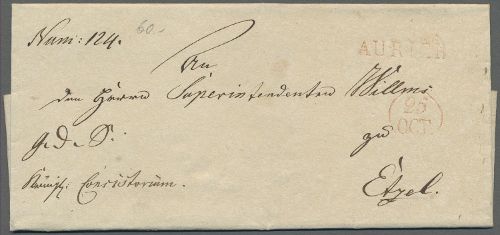 Num: 124.
60.-
AURICH
An
den Herrn Superintendenten Willms
25
OCT.
g. d. S.
zu
Königl: Consistorium.
Etzel.